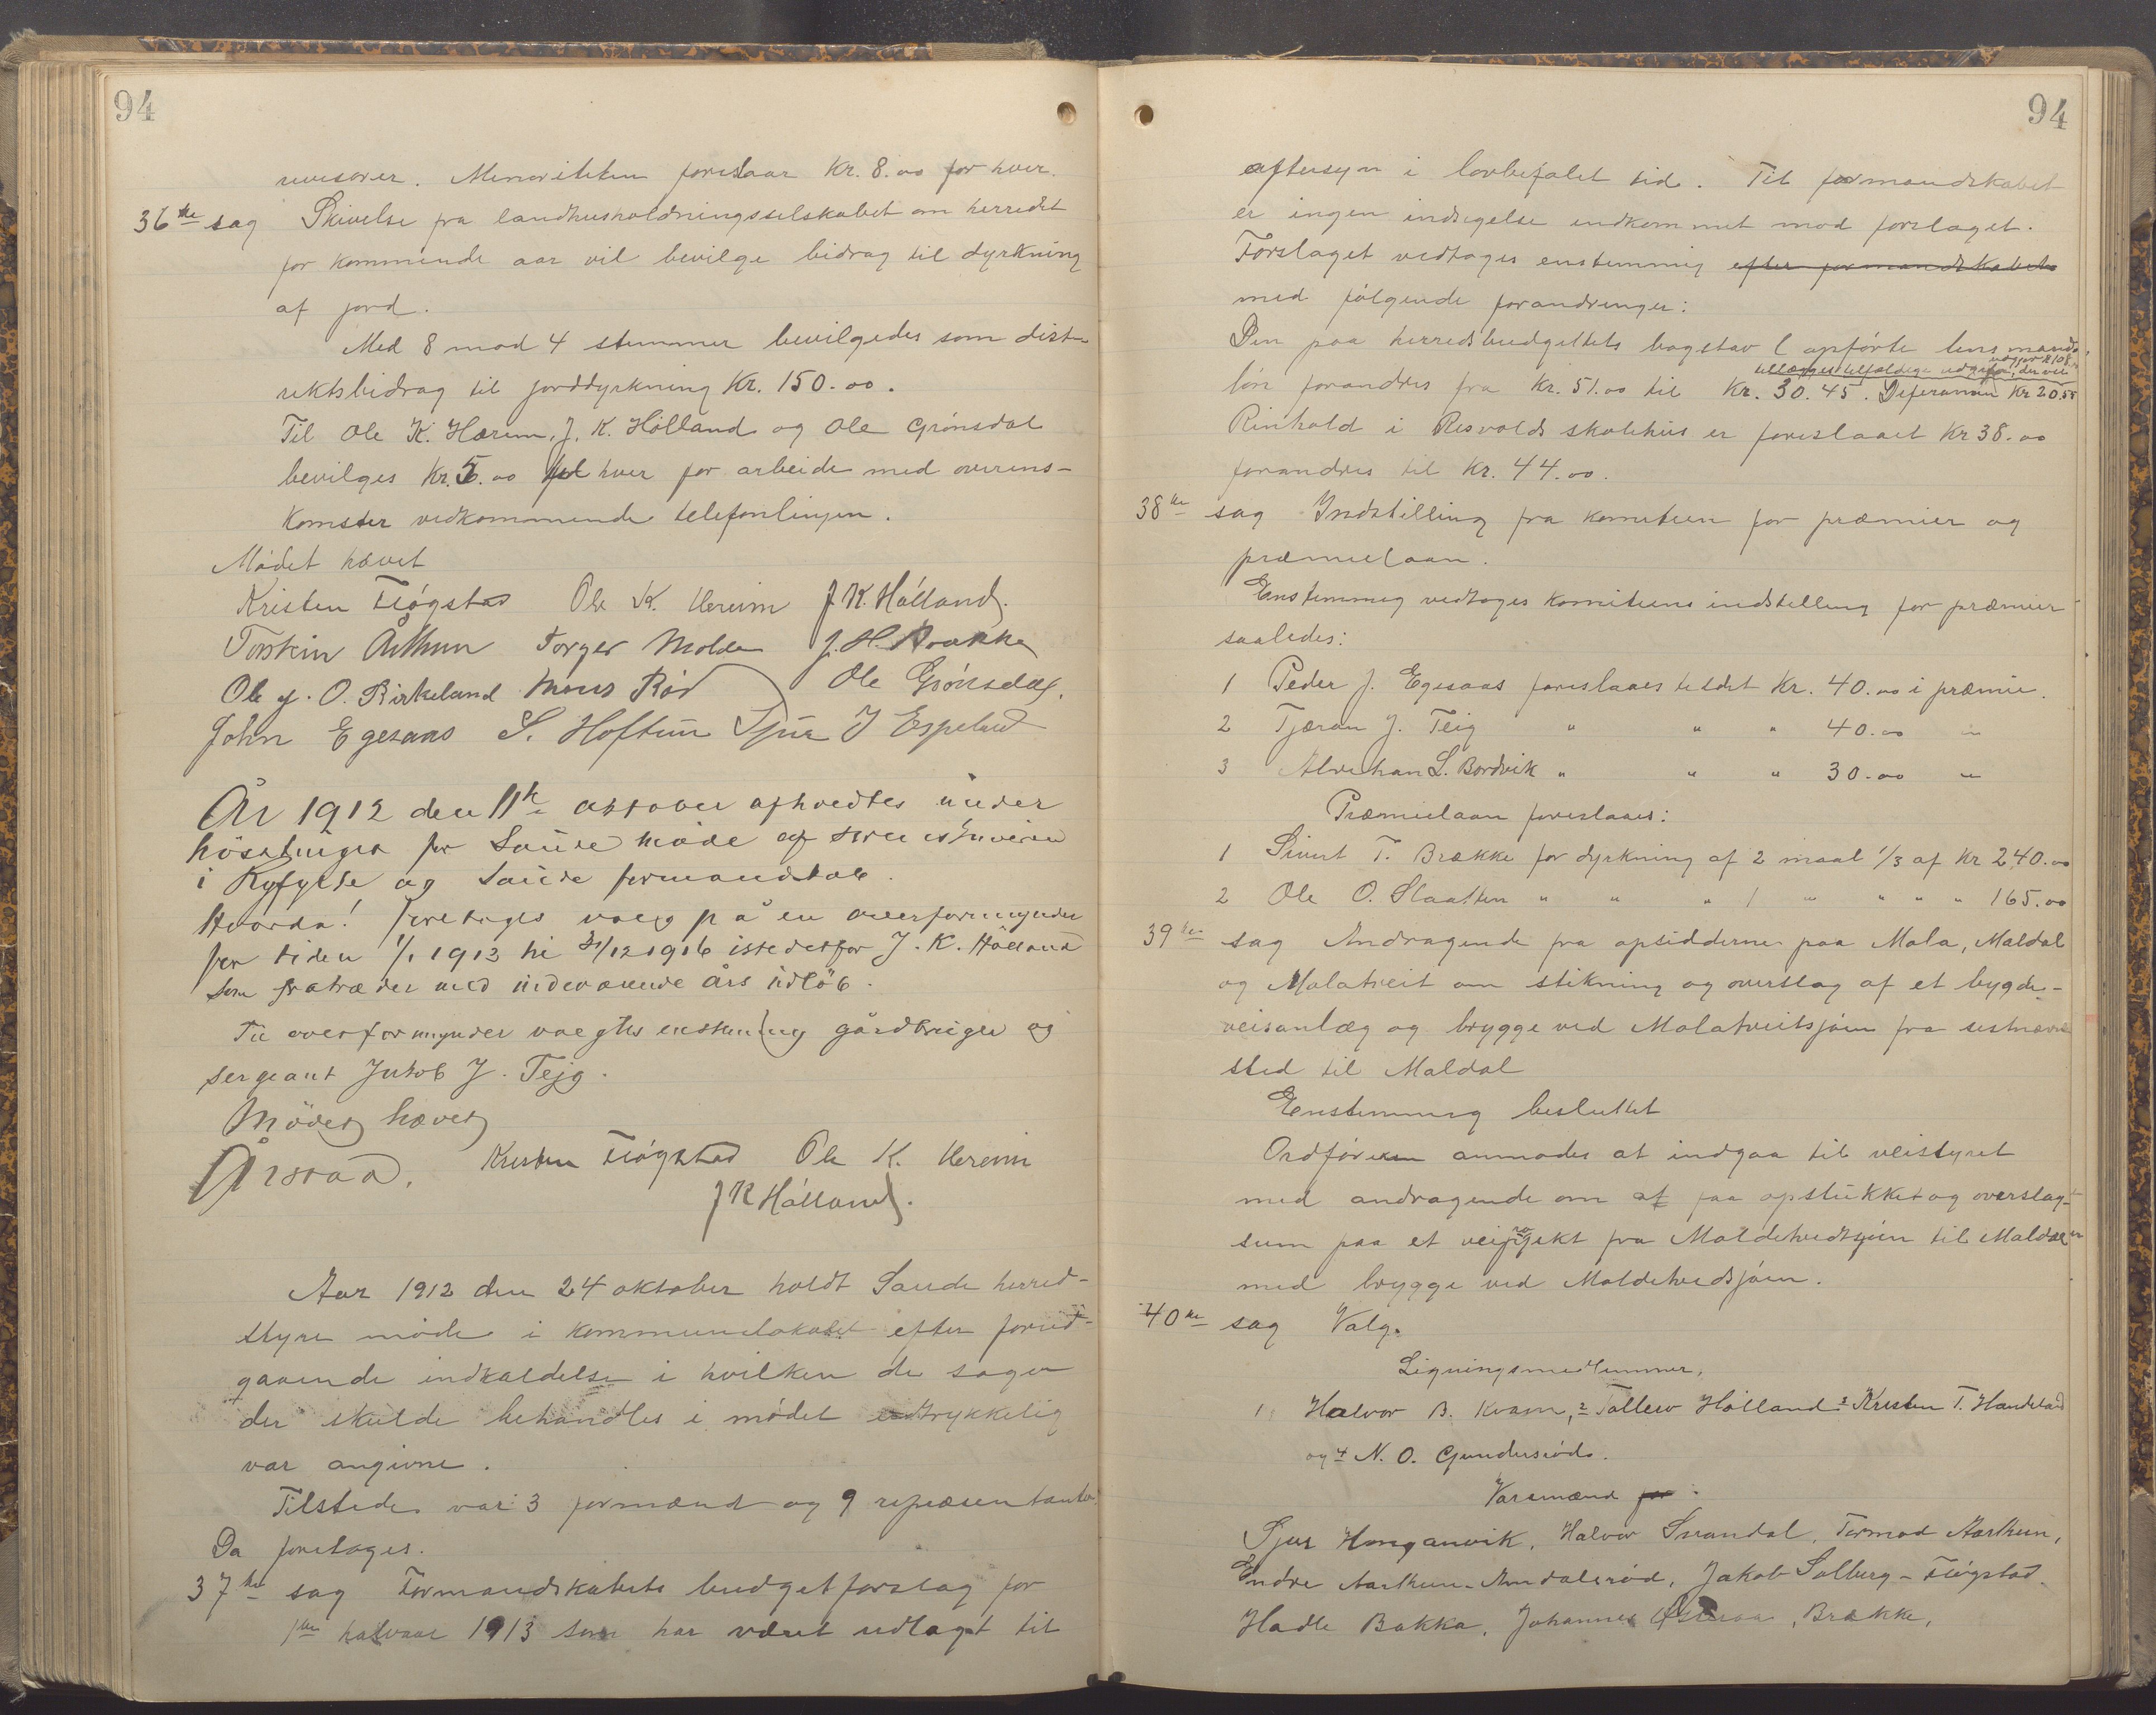 94
revisorer. Menoriteten foreslaar Kr. 8.00 for hver.
36te sag Skivelse fra landhusholdningsselskabet om herredet
for kommende aar vil bevilge bidrag til dyrkning
af jord.
Med 8 mod 4 stemmer bevilgedes som dist-
riktsbidrag til jorddyrkning Kr. 150.00.
Til Ole K. Hærem, J. K. Hølland og Ole Grønsdal
bevilges Kr. 5.00 hver for arbeide med overens-
komster vedkommende telefonlinjen.
Mødet hævet
Kristen Fløgstad Ole K. Hereim J. K. Hølland.
Torstein Århun Torger Molde J. H. Brække
Ole J. O. Birkeland Mons Rød Ole Grønsdal.
John Egesaas S. Hoftun Sjur J Espeland
År 1912 den 11te oktober afholdtes under
hösttinget for Saude möde af sorenskriveren
i Ryfylke og Saude formandskab.
Hvorda! Foretoges valg på en overformynder
for tiden 1/1 1913 til 31/12 1916 istedetfor J. K. Hölland
som fratræder med indeværende års udlöb.
Til overformynder valgtes enstemmig gårdbruger og
sergeant Jakob J. Tejg.
Mödet hævet
Årstad. Kristen Fløgstad Ole K. Hereim
J K Hølland.
Aar 1912 den 24 oktober holdt Saude herred-
styre møde i kommunelokalet efter forud-
gaaende indkaldelse i hvilken de sager
der skulde behandles i mødet udtrykkelig
var angivne.
Tilstede var 3 formænd og 9 repræsentanter.
Da foretoges.
37te sag Formandskabets budgetforslag for
1ste halvaar 1913 som har været udlagt til
94
eftersyn i lovbefalet tid. Til formandskabet
er ingen indsigelse indkommet mod forslaget.
Forslaget vedtages enstemmig efter formandskabets
med følgende forandringer:
Den paa herredsbudgettets bogstav l opførte lensmands
tillægges tilfældige udgifter, der
løn forandres fra Kr. 51.00 til Kr. 30.45. Diferansen Kr 20.55
Rinhold i Risvolds skolehus er foreslaaet Kr 38.00
forandres til Kr. 44.00.
38te sag Indstilling fra komiteen for præmier og
præmielaan.
Enstemmig vedtoges komiteens indstilling for præmier
saaledes:
1 Peder J. Egesaas foreslaaes tildelt Kr. 40.00 i præmie.
2 Tjæran J. Teig " " " 40.00 "
3 L. Bordvik " " " 30.00 "
Præmielaan foreslaaes:
1 Sivert T. Brække for dyrkning af 2 maal 1/3 af Kr 240.00
2 Ole O. Slaatten " " " 1 " " " " 165.00
39te sag Andragende fra opsidderne paa Mala, Maldal
og Malatveit om stikning og overslag af et bygde-
veisanlæg og brygge ved Malatveitsjøen fra sistnævnte
sted til Maldal
Enstemmig besluttet
Ordføreren anmodes at indgaa til veistyret
med andragende om at faa opstukket og overslag-
sum paa et veiprojekt fra Maldetvedtsjøen til Maldalen
med brygge ved Maldetvedsjøen.
40te sag Valg.
Ligningsmedlemmer.
1, Halvor B. Kvam, 2 Tollew Hølland 3 Kristen T. Handeland
og 4 N. O. Gundersrød.
Varemænd for:
Sjur Honganvik, Halvor Svandal, Tormod Aarthun,
Endre Aarthun-Amdalsrød, Jakob Solberg-Fløgstad.
Hadle Bakka, Johannes , Brække,